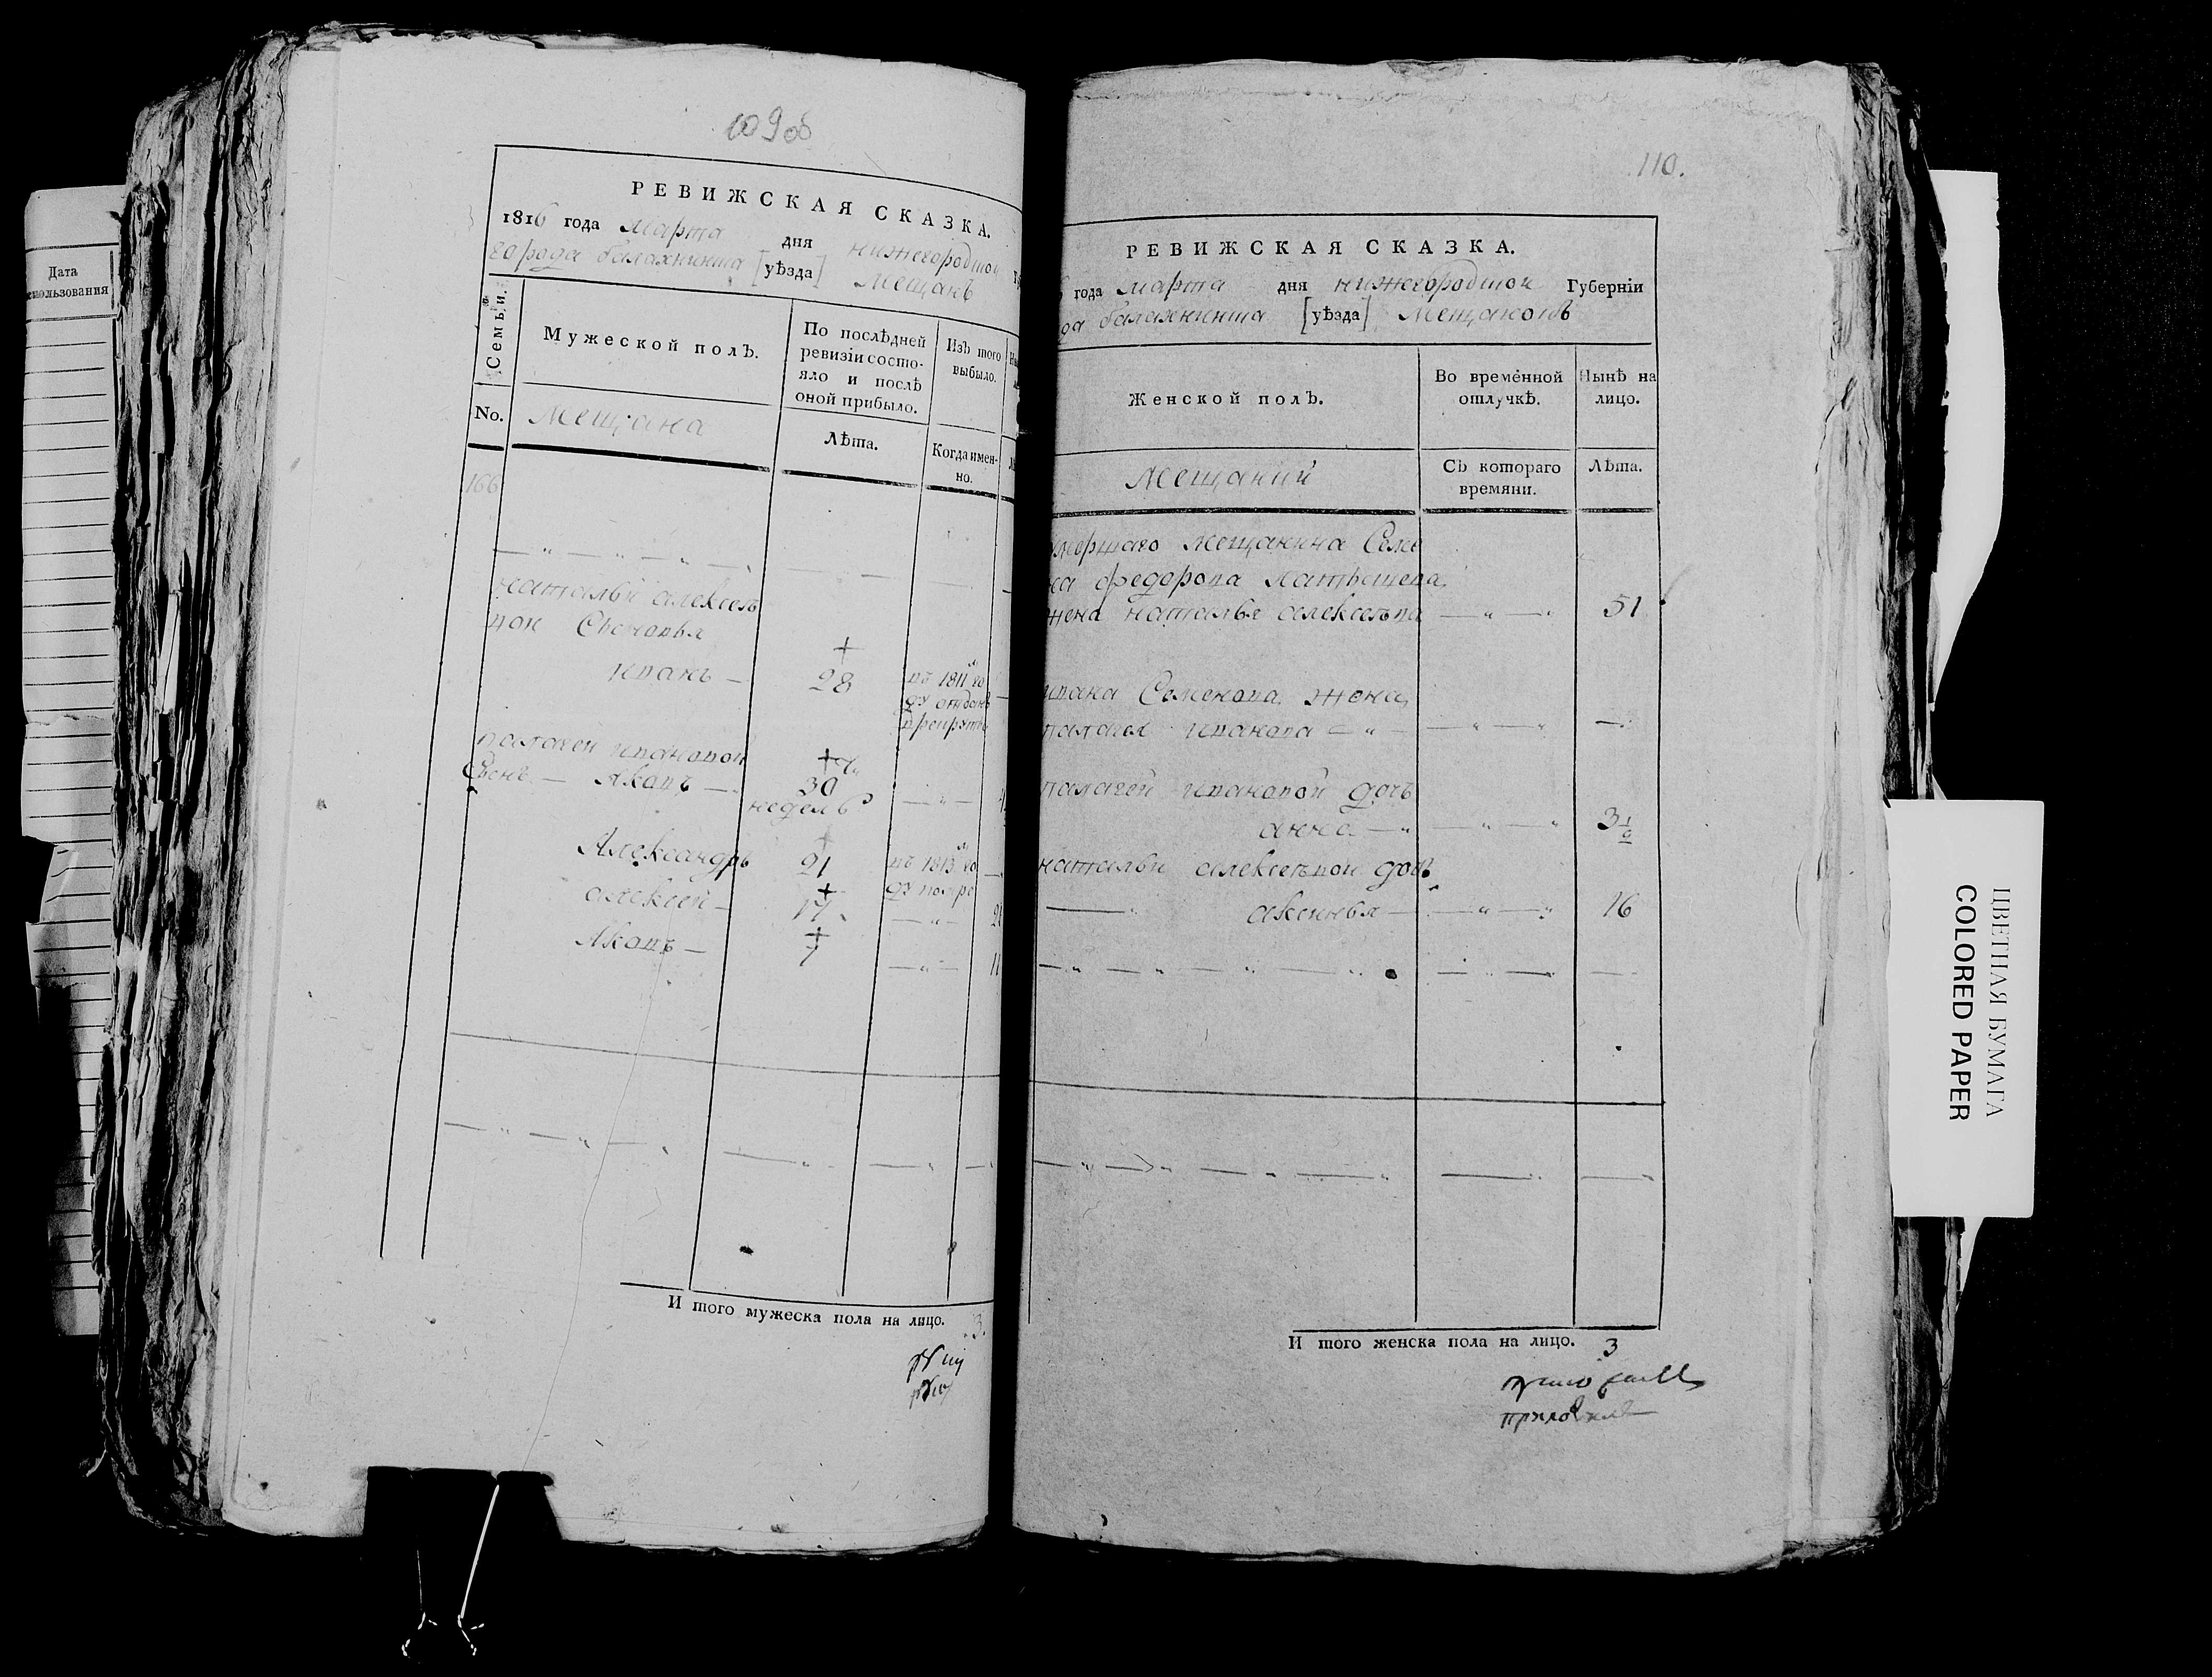 Дата
пользованія
109 об
РЕВИЖСКАЯ СКАЗКА.
1816 года марта дня нижегородской
города балахнинша [уѣзда] мещанъ
Семьи.
Мужеской полъ.
По послѣдней
ревизіи состо-
яло и послѣ
оной прибыло.
Изъ того
выбыло.
No.
Мещана
Лѣта.
Когда имен-
но.
166
натальи алексеев
ной Сыновья
иванъ — 28
въ 1811м го
ду отданъ
в рекруты
палагеи ивановой
Сынъ — Яковъ — 30
недель
Александръ 21
въ 1813м го
ду помре
алексей — 17
Яковъ — 7
И того мужеска пола на лицо. 3.
110.
РЕВИЖСКАЯ СКАЗКА.
года марта дня нижегородской Губерніи
да балахнинша [уѣзда] Мещанонъ
Женской полъ.
Во времѐнной
отлучкѣ.
Нынѣ на
лицо.
Мещаний
Съ котораго
времяни.
Лѣта.
умершаго мещанина Семе
на федорова латышева
жена наталья алексеева 51
ивана Семенова жена
палагея иванова
палагеи ивановой дочь
анна 3 1/2
натальи алексеевной дочь
аксинья 16
И того женска пола на лицо. 3
ЦВЕТНАЯ БУМАГА
COLORED PAPER